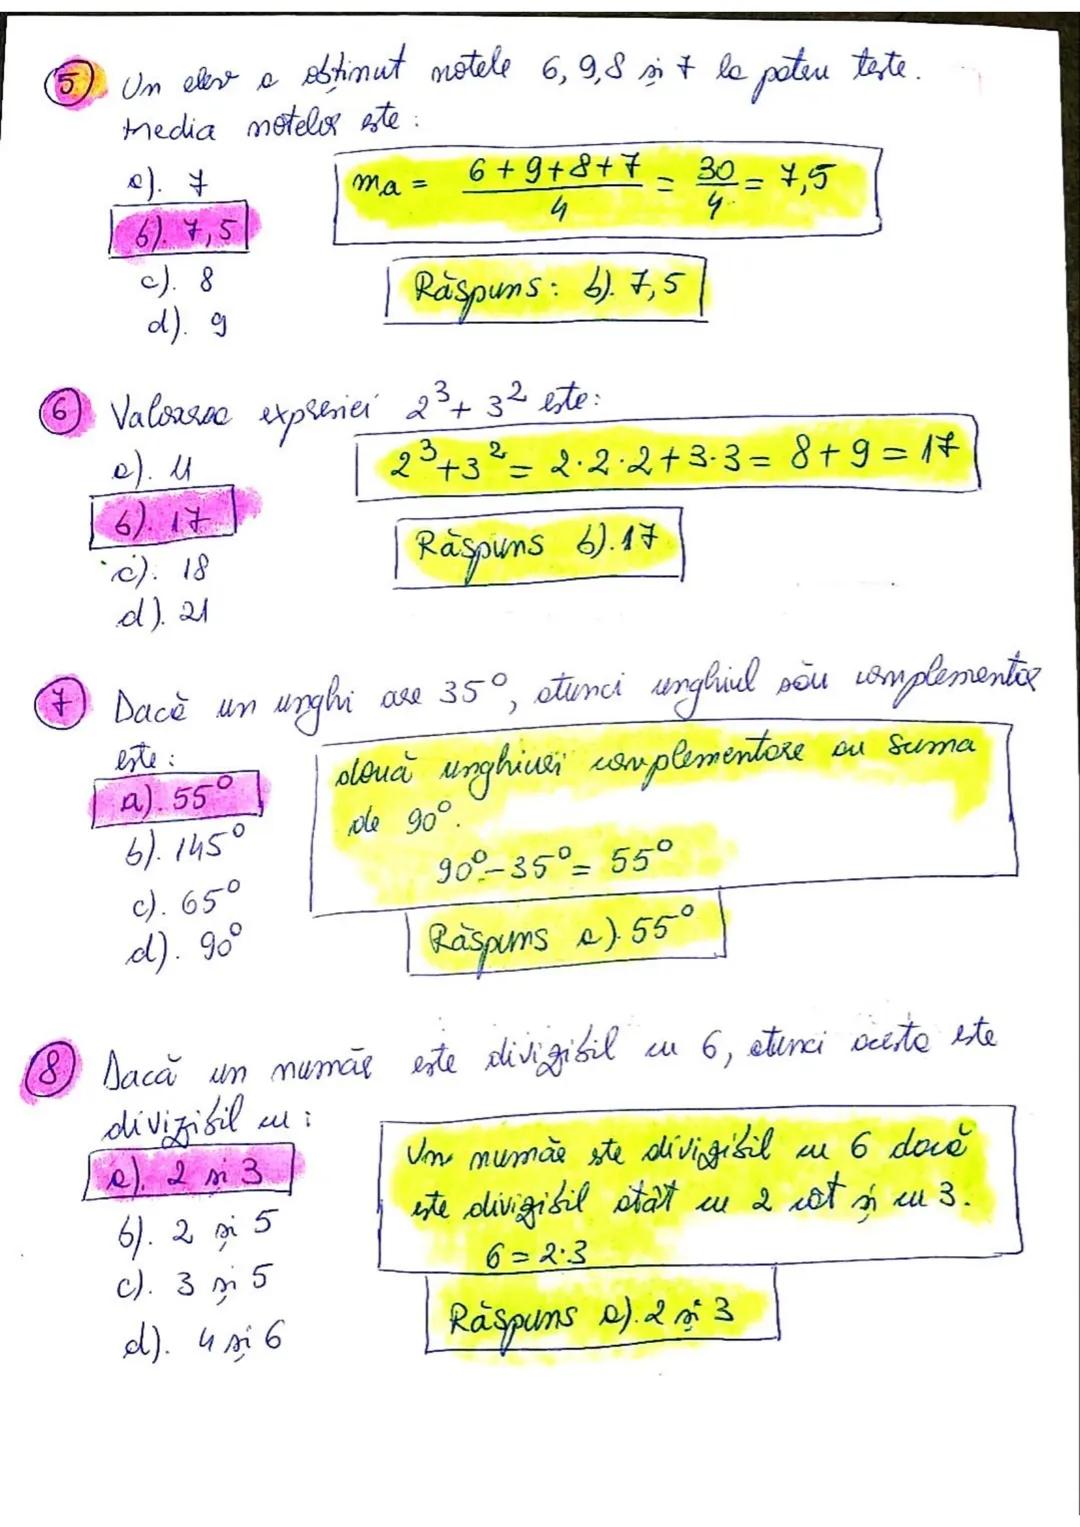 5 Un elev a obținut notele 6, 9, 8 și 7 la patru teste.
Media notelor este:
a). 7
ma = (6 + 9 + 8 + 7)/4 = 30/4 = 7,5
b). 7,5
c). 8
Răspuns: b). 7,5
d). 9
6 Valoarea expresiei 2³ + 3² este:
a). 11
2³+3² = 2·2·2+3·3 = 8+9 = 17
b). 17
Răspuns b). 17
c). 18
d). 21
7 Dacă un unghi are 35°, atunci unghiul său complementar
este:
două unghiuri complementare au suma
de 90°.
90°-35° = 55°
a). 55°
b). 145°
c). 65°
Răspuns a). 55°
d). 90°
8 Dacă un număr este divizibil cu 6, atunci acesta este
divizibil cu:
a). 2 și 3
Un număr este divizibil cu 6 dacă
este divizibil atât cu 2 cât și cu 3.
6 = 2·3
b). 2 și 5
c). 3 și 5
Răspuns a). 2 și 3
d). 4 și 6